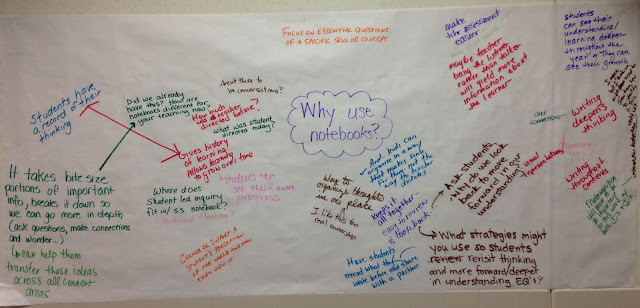 FOCUS ON ESSENTIAL QUESTIONS
OF A SPECIFIC SKILL OR CONCEPT.
Why use
notebooks?
students have
a record of their
thinking
Did we already
have this? How are
notebooks different for
your teaching now?
Aren't these to
be conversations?
How much
teacher
directed before?
What was student
directed today?
Gives history
of learning
Allows learning
to grow over time
It takes bite size
portions of important
info, breaks it down so
we can go more in depth
(ask questions, make connections
and wonder...)
can help them
transfer these ideas
across all content
areas.
Where does
Student led inquiry
fit w/ s.s. notebook?
historical thinking?
students can
see their own
progress
and how
they view it
make
for assessment
easier
maybe teacher
being the listener
rather than talker
will yield more
information about
the learner
students
can see their
understanding/
learning deepen
throughout the
year & they can
see their growth
and
connections
Writing
deepens
thinking
Writing
throughout
contents
And kids can
organize in a way
that makes sense
to them, teacher
the students
Way to
organize thoughts
in one place
I like this too
real ownership
Keeps it
all together
easy to review
& look back
Ask students
why do we look
back to move
forward in our
understanding
visual
representations
Have students
reread what they
wrote before and share
with a partner
What strategies might
you use so students
review revisit thinking
and move forward/deeper
in understanding EQ's?